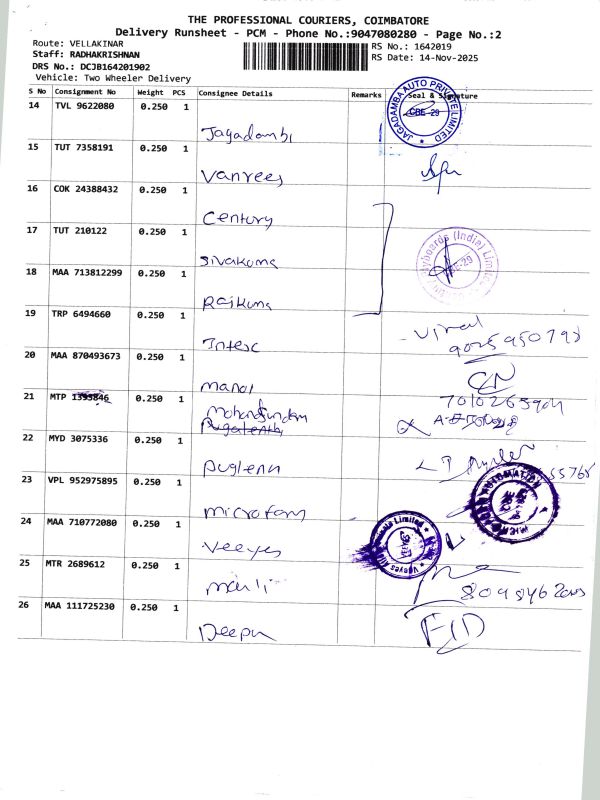 THE PROFESSIONAL COURIERS, COIMBATORE
Delivery Runsheet - PCM - Phone No.:9047080280 - Page No.:2
Route: VELLAKINAR
RS No.: 1642019
Staff: RADHAKRISHNAN
RS Date: 14-Nov-2025
DRS No.: DCJB164201902
Vehicle: Two Wheeler Delivery
S No Consignment No Weight PCS Consignee Details Remarks Seal & Signature
14 TVL 9622080 0.250 1
Jagadambi
JAGADAMBA AUTO PRIVATE LIMITED
CBE-29
15 TUT 7358191 0.250 1
Vanrees
16 COK 24388432 0.250 1
Century
17 TUT 210122 0.250 1
Sivakuma
(India) Limited
CBE-29
18 MAA 713812299 0.250 1
Rajkuma
19 TRP 6494660 0.250 1
Intesc
20 MAA 870493673 0.250 1
Manol
21 MTP 1393846 0.250 1
7010265904
22 MYD 3075336 0.250 1
Puglenn
23 VPL 952975895 0.250 1
Microfam
AUTOMATION
24 MAA 710772080 0.250 1
Veeyes
Limited
25 MTR 2689612 0.250 1
26 MAA 111725230 0.250 1
Deepn